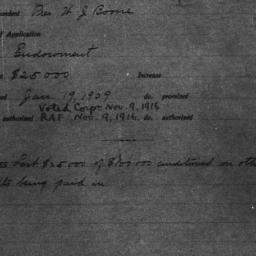 ndent Pres H J Boone
f Application
Endowment
$25000 Increase
Jan 19, 1909 do. promised
Voted Corp. Nov. 9, 1916
authorized RAF Nov. 9, 1916. do. authorized
Last $25000 of $100000 conditioned on oth
being paid in